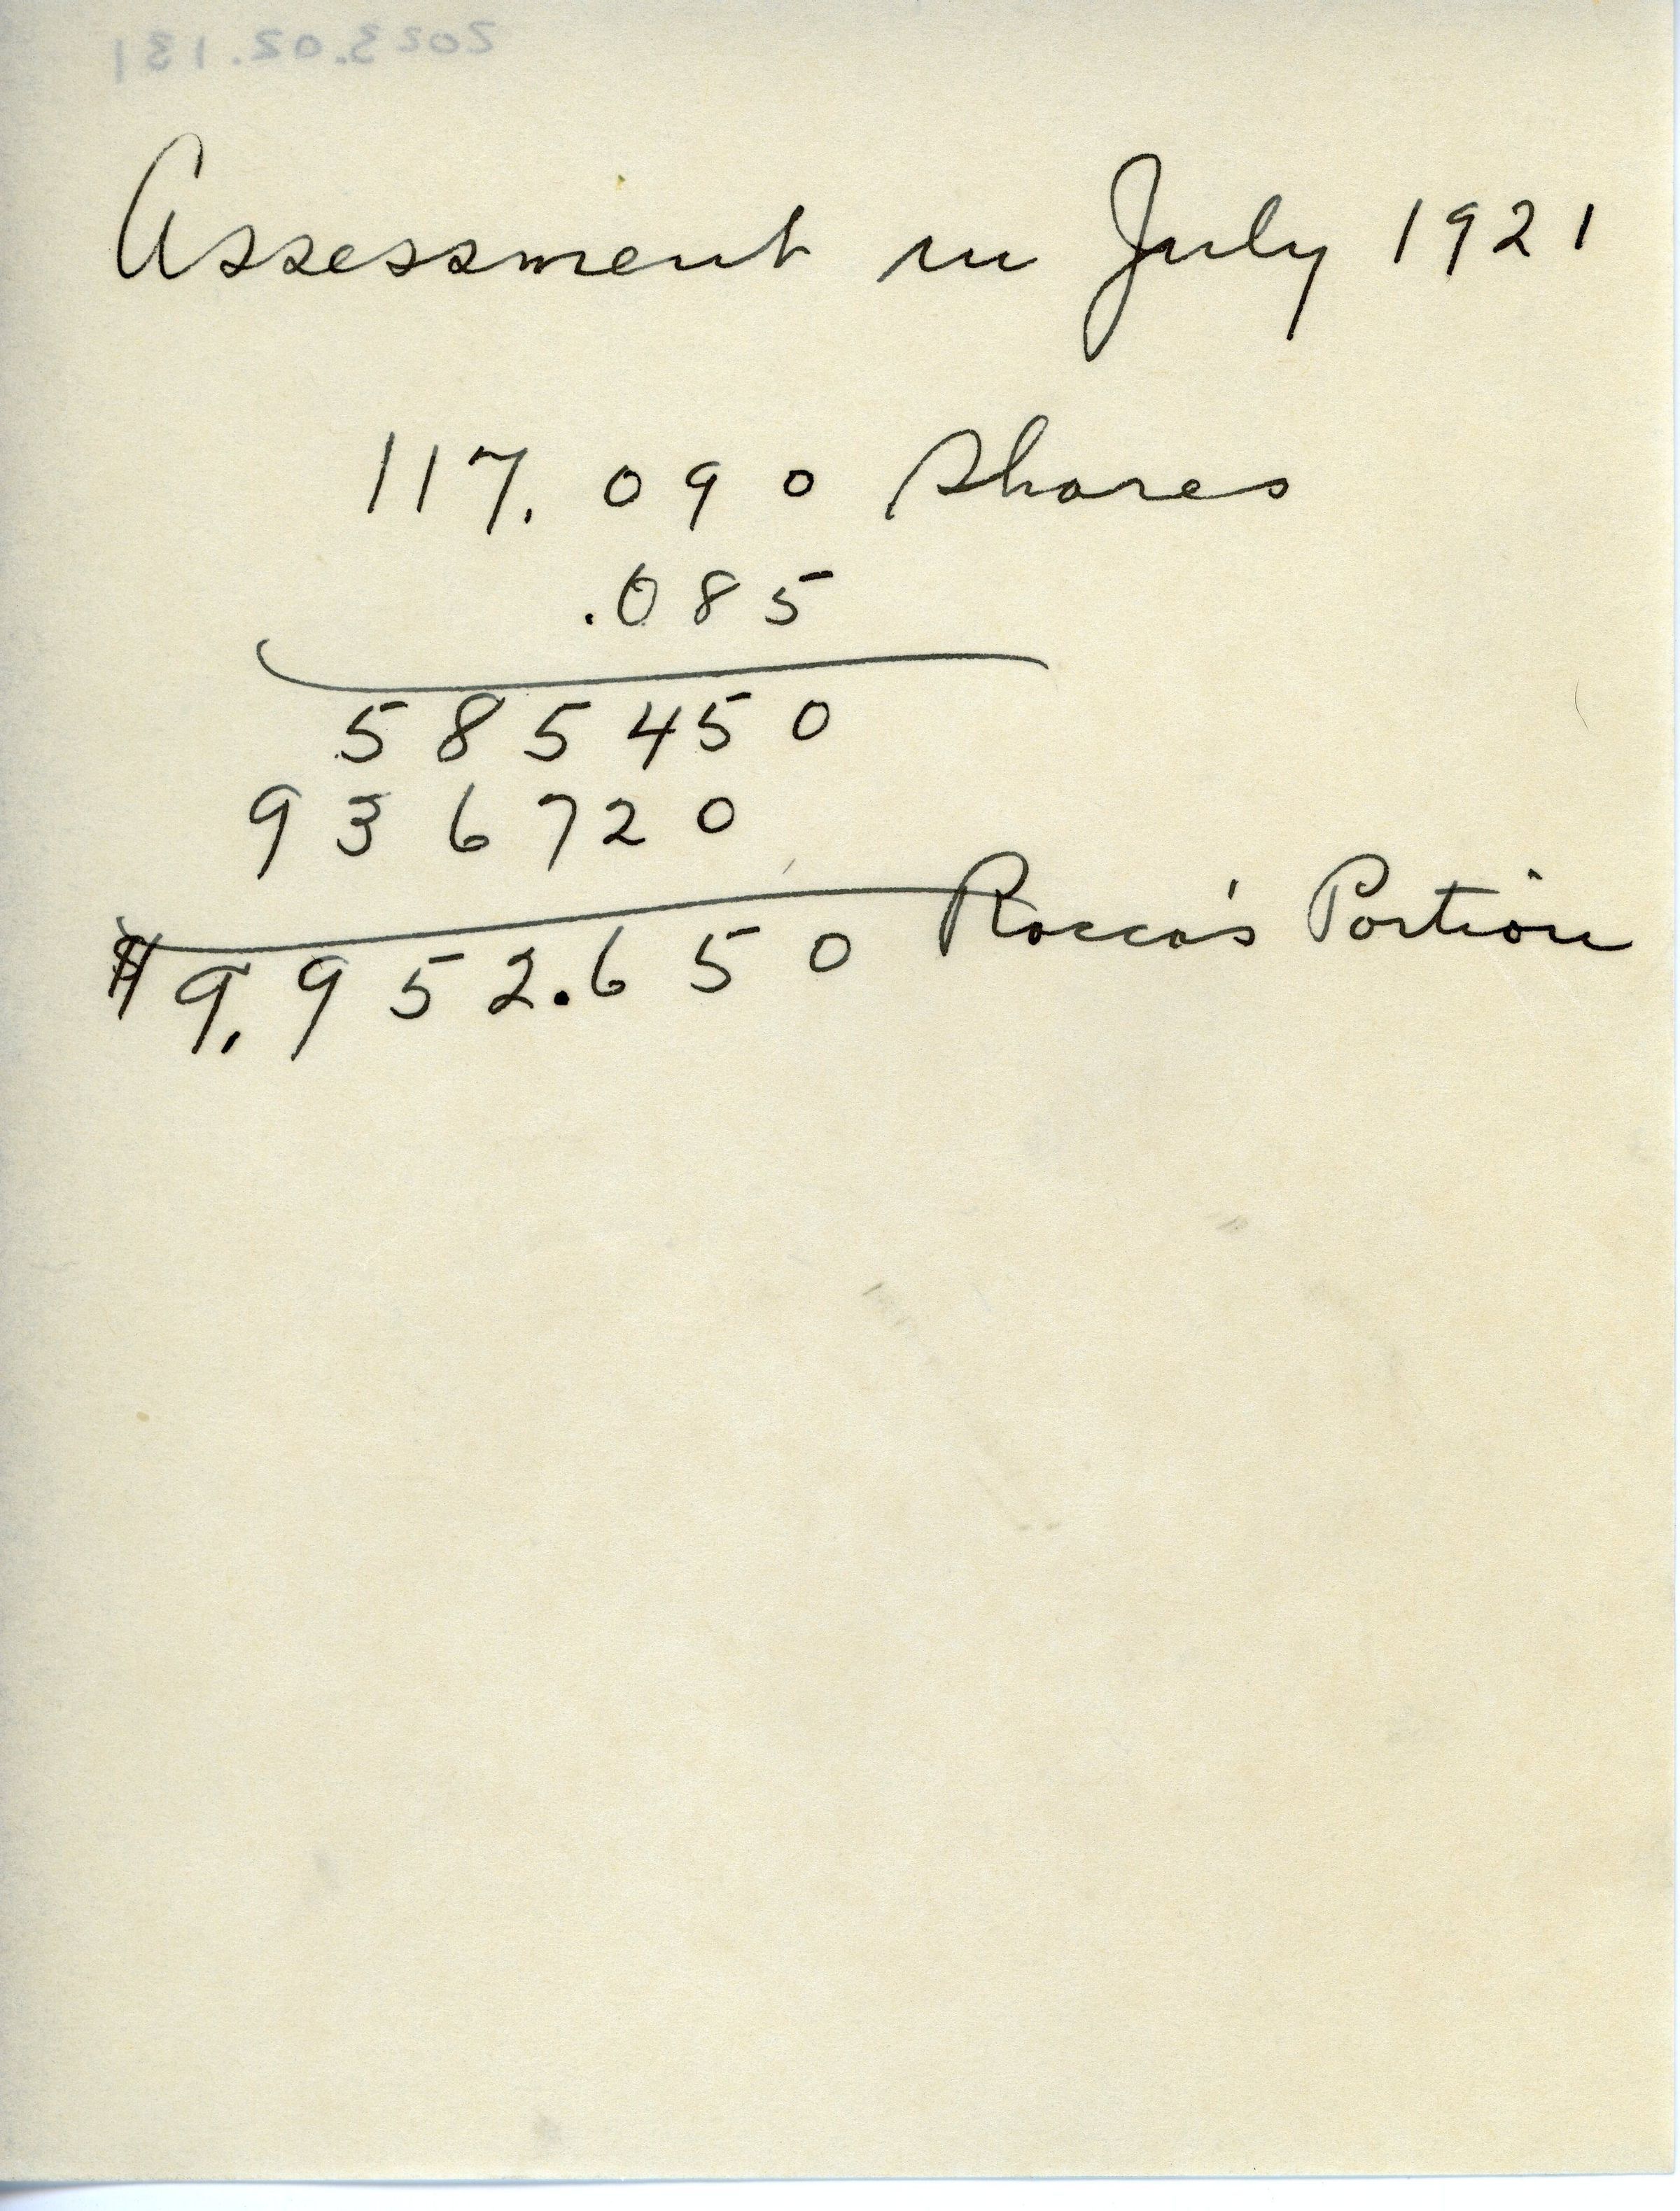 2023.02.131
Assessment in July 1921
117,090 Shares
.085
585450
936720
$9,952.650 Rocca's Portion